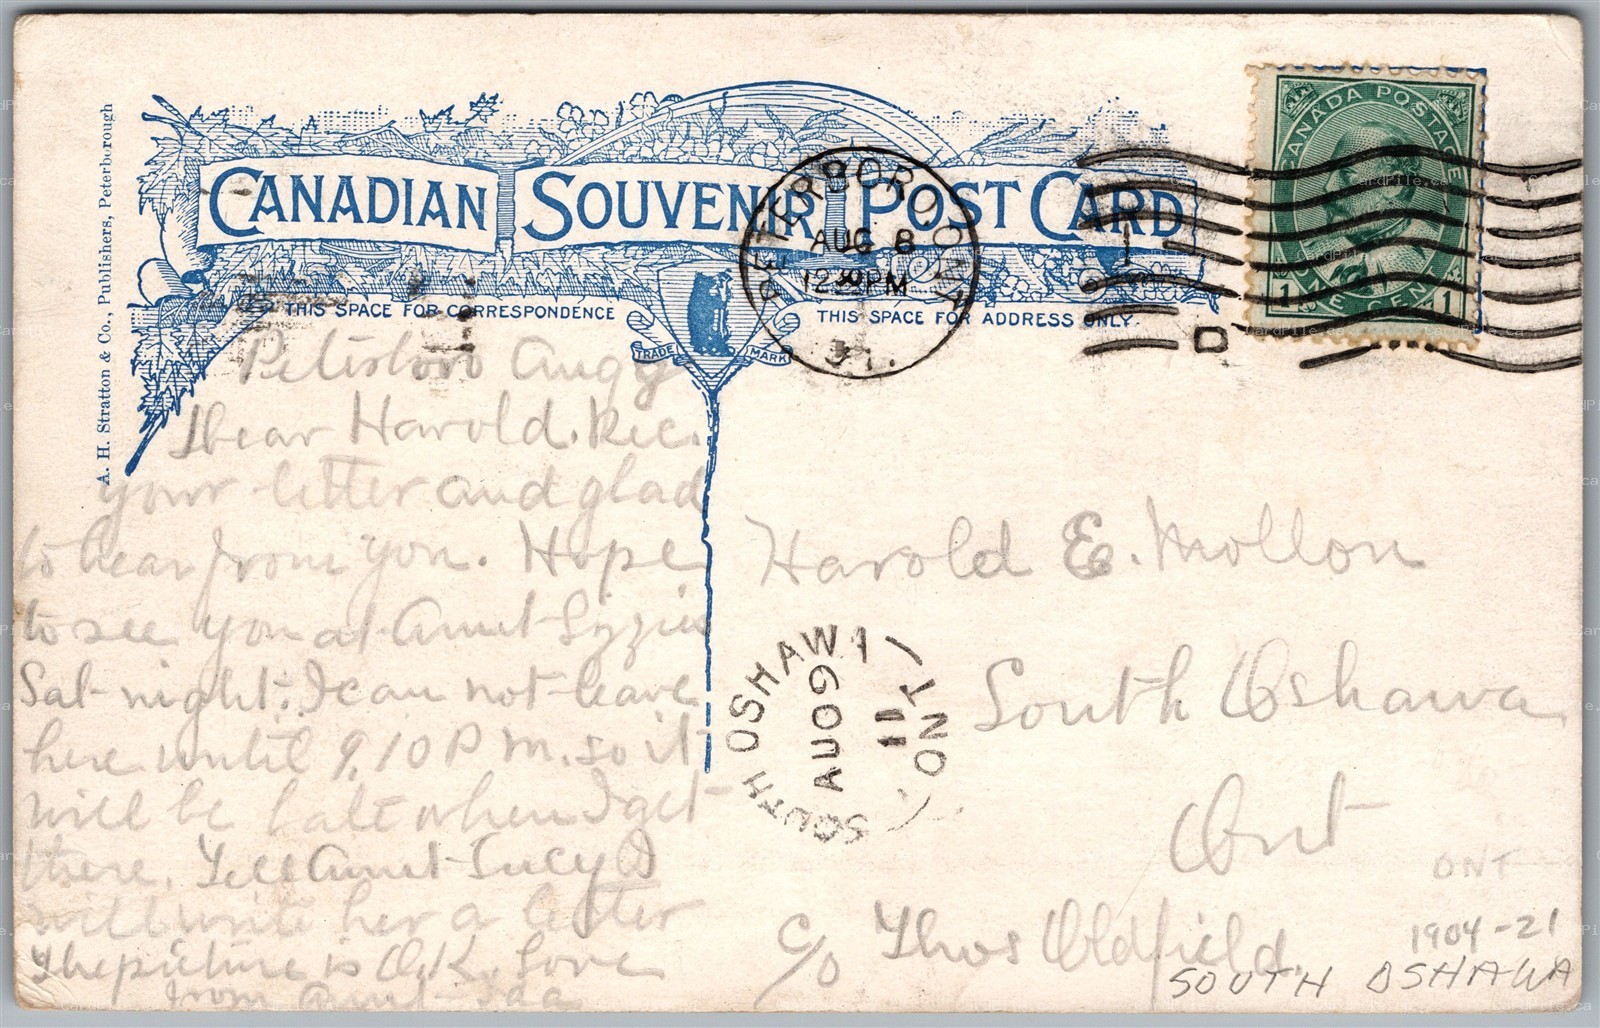 A. H. Stratton & Co., Publishers, Peterborough
CANADIAN SOUVENIR POST CARD
THIS SPACE FOR CORRESPONDENCE
THIS SPACE FOR ADDRESS ONLY.
TRADE MARK
PETERBORO. ONT.
AUG 8
12 30 PM
D
CANADA POSTAGE
1 ONE CENT 1
Peterboro Aug
Dear Harold. Rec.
your letter and glad
to hear from you. Hope
to see you at Aunt Lizzies
Sat night. I can not leave
here until 9.10 P M. so it
will be late when I get
there. Tell Aunt Lucy I
will write her a letter
The picture is O.K. Love
from Aunt
Harold E. Mollon
South Oshawa
Ont
c/o Thos Oldfield.
SOUTH OSHAWA
AU 09
11
ONT
ONT
1904-21
SOUTH OSHAWA